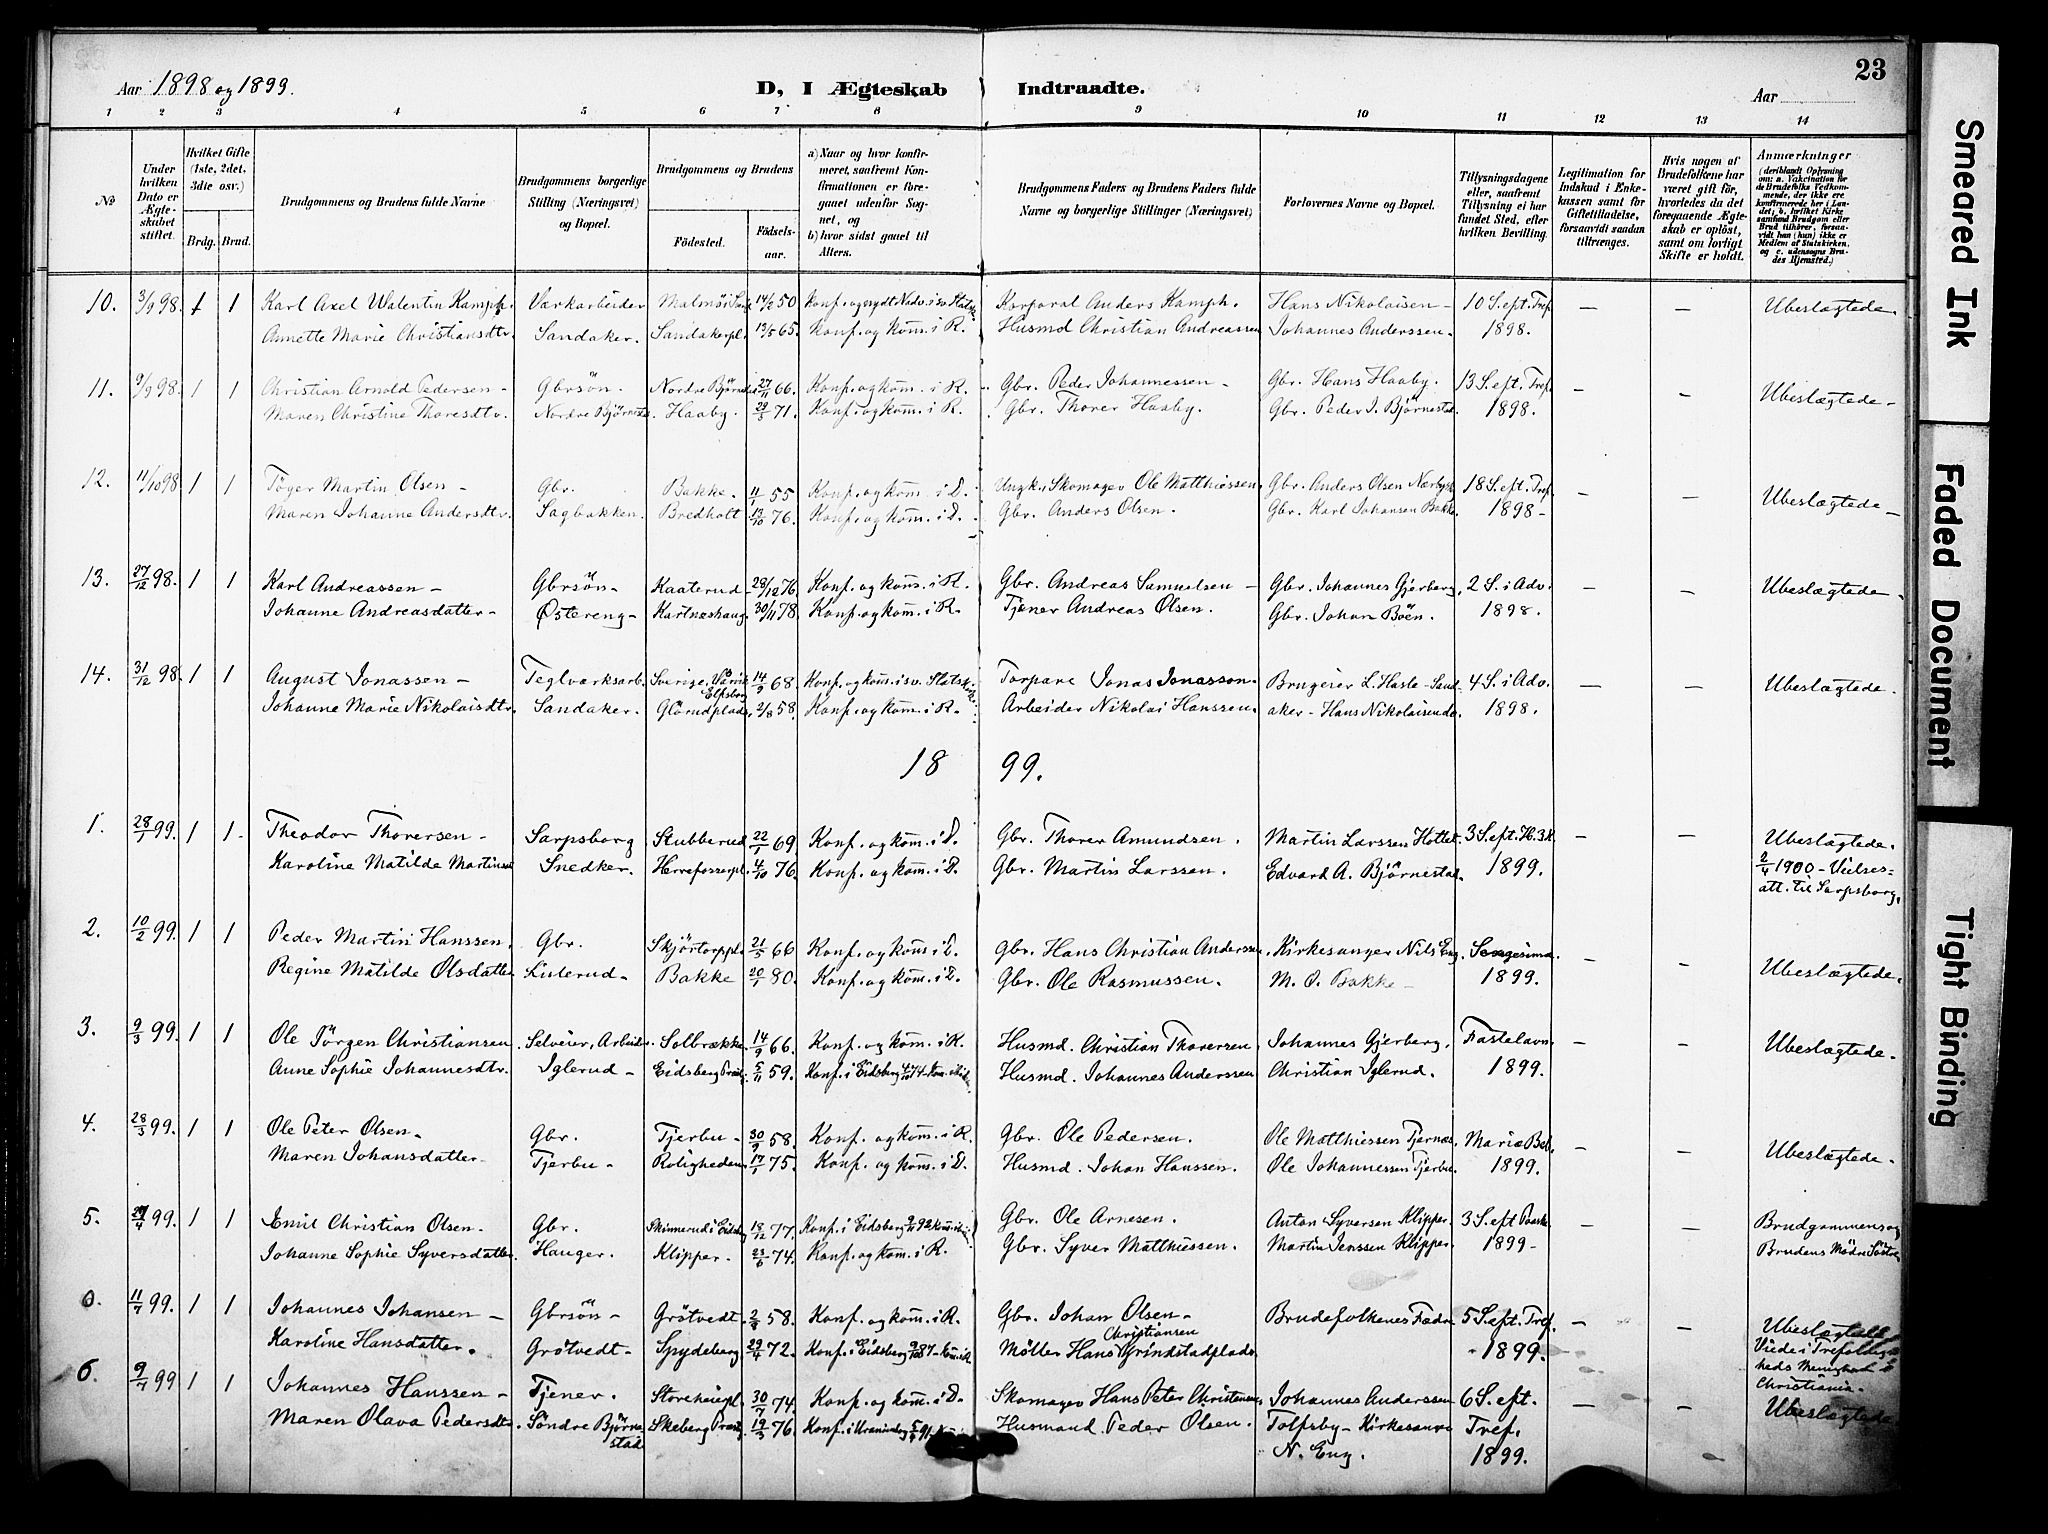 23
Aar 1898 og 1899.
D, I Ægteskab Indtraadte.
Aar
1 2 3 4 5 6 7 8 9 10 11 12 13 14
No
Under hvilken Dato er Ægteskabet stiftet.
Hvilket Gifte (1ste, 2det, 3die osv.)
Brdg. Brud.
Brudgommens og Brudens fulde Navne
Brudgommens borgerlige Stilling (Næringsvei) og Bopæl.
Brudgommens og Brudens
Fødested. Fødselsaar.
a) Naar og hvor konfirmeret, saafremt Konfirmationen er foregaaet udenfor Sognet, og
b) hvor sidst gaaet til Alters.
Brudgommens Faders og Brudens Faders fulde Navne og borgerlige Stillinger (Næringsvei)
Forlovernes Navne og Bopæl.
Tillysningsdagene eller, saafremt Tillysning ei har fundet Sted, efter hvilken Bevilling.
Legitimation for Indskud i Enkekassen samt for Giftetilladelse, forsaavidt saadan tiltrænges.
Hvis nogen af Brudefolkene har været gift før, hvorledes da det foregaaende Ægteskab er opløst, samt om lovligt Skifte er holdt.
Anmærkninger (deriblandt Oplysning om: a. Vaccination for de Brudefolks Vedkommende, der ikke ere konfirmerede her i Landet; b. hvilket Kirkesamfund Brudgom eller Brud tilhører, forsaavidt han (hun) ikke er Medlem af Statskirken, og c. udensogns Brudes Hjemsted.)
10. 3/9 98. 1 1 Karl Axel Walentin Kamph. Værkarbeider Malmö i 14/2 50 Konf. og Korporal Anders Kamph. Hans Nikolaisen - 10 S. eft. Tref. — Ubeslægtede.
Annette Marie Christiansdtr. Sandaker. Sandakerpl. 13/5 65. Konf. og kom. i R. Husmd Christian Andreassen Johannes Anderssen. 1898.
11. 9/9 98. 1 1 Christian Arnold Pedersen - Gbrsön. Nordre Björnstad 27/11 66. Konf. og kom. i R. Gbr. Peder Johannessen - Gbr. Hans Haaby. 13 S. eft. Tref. — — Ubeslægtede -
Maren Christine Thoresdtr. Nordre Björnestad. Haaby. 29/3 71. Konf. og kom. i R. Gbr. Thorer Haaby. Gbr. Peder J. Björnestad. 1898.
12. 11/10 98 1 1 Töger Martin Olsen - Gbr. Bakke. 11/1 55 Konf. og kom. i D. Ungk., Skomager Ole Matthiessen, Gbr. Anders Olsen 18 S. eft. Tref. — — Ubeslægtede -
Maren Johanne Andersdtr. Sagbakken. Bredholt 13/10 76. Konf. og kom. i D. Gbr. Anders Olsen. Gbr. Karl Johansen Bakke. 1898 -
13. 27/12 98. 1 1 Karl Andreassen - Gbrsön - Kaaterud - 28/12 76 Konf. og kom. i R. Gbr. Andreas Samuelsen - Gbr. Johannes Gjerberg, 2 S. i Adv. — — Ubeslægtede -
Johanne Andreasdatter - Östereng - Kartnæshaug. 30/11 78. Konf. og kom. i R. Tjener Andreas Olsen. Gbr. Johan Böen. 1898.
14. 31/12 98. 1 1 August Jonassen - Teglværksarb. Sverige, 14/9 68. Konf. og kom. i sv. Statsk. Torpare Jonas Jonasson. Brugeier L. Hasle - Sand- 4 S. i Adv. — — Ubeslægtede.
Elfsborg
Johanne Marie Nikolaisdtr. Sandaker. Glörudplads. 2/8 58. Konf. og kom. i R. Arbeider Nikolai Hanssen. aker - Hans Nikolaisen do. 1898.
18 99.
1. 28/1 99. 1 1 - Theodor Thorersen - Sarpsborg Stubberud 22/1 69 Konf. og kom. i D. Gbr. Thorer Amundsen. Martin Larssen 3 S. eft. H. 3 K. — — Ubeslægtede.
Karoline Matilde Martinsd Snedker. Herrefosserpl. 4/10 76. Konf. og kom. i D. Gbr. Martin Larssen. Edvard A. Björnestad. 1899. 2/4 1900 - Vielses-
att. til Sarpsborg.
2. 10/2 99. 1 1 Peder Martin Hanssen. Gbr. Skjörtorppl. 21/5 66 Konf. og kom. i D. Gbr. Hans Christian Anderssen, Kirkesanger Nils Eng. — —
Regine Matilde Olsdatter Listerud - Bakke 20/1 80. Konf. og kom. i D. Gbr. Ole Rasmussen. M. O. Bakke - 1899. Ubeslægtede.
3. 9/3 99. 1 1 Ole Jörgen Christiansen Selveier, Arbeider. Solbrække. 14/9 66. Konf. og kom. i R. Husmd. Christian Thorersen Johannes Gjerberg. Fastelavn. — — Ubeslægtede -
Anne Sophie Johannesdtr. Iglerud - Eidsberg 5/11 59. Konf. i Eidsberg Husmd. Johannes Anderssen Christian Iglerud. 1899.
4. 28/3 99. 1 1 Ole Peter Olsen - Gbr. Tjerbu - 30/9 58. Konf. og kom. i R. Gbr. Ole Pedersen. Ole Matthiessen Tjernæs. Mariæ Beb. — — Ubeslægtede.
Maren Johansdatter - Tjerbu - Roligheden 17/1 75. Konf. og kom. i D. Husmd. Johan Hanssen. Ole Johannessen Tjerbu. 1899.
5. 99. 1 1 Emil Christian Olsen. Gbr. Skinnerud i Eidsbg 18/12 77. Konf. i Eidsberg Gbr. Ole Arnesen. Anton Syversen Klipper. 3 S. eft Paaske — — Brudgommens og
Johanne Sophie Syversdatter Hauger. Klipper. 23/6 74. Konf. og kom. i R. Gbr. Syver Matthiessen. Martin Jenssen Klipper. 1899 - Brudens Mödre Söstre
11/7 99. 1 1 Johannes Johansen - Gbrsön - Grötvedt. 58. Konf. og kom. i R. Gbr. Johan Olsen - Brudefolkenes Fædre 5 S. eft. Tref. — — Ubeslægtede
Christiansen
Karoline Hansdatter. Grötvedt - Spydeberg 29/4 72. Konf. i Eidsberg Möller Hans Grindstadplads. 1899. Viede i Trefoldig-
heds Menighed i
Christiania.
6. 9/7 99 1 1 Johannes Hanssen - Tjener. 30/7 74. Konf. og kom. i D. Skomager Hans Peter Christensen, Johannes Anderssen 6 S. eft. — — Ubeslægtede
Maren Olava Pedersdtr. Söndre Björne- Skeberg 19/3 76 Konf. i Husmand Peder Olsen. Tolfsby - Kirkesanger Tref.
stad N. Eng. 1899.
Smeared Ink
Faded Document
Tight Binding